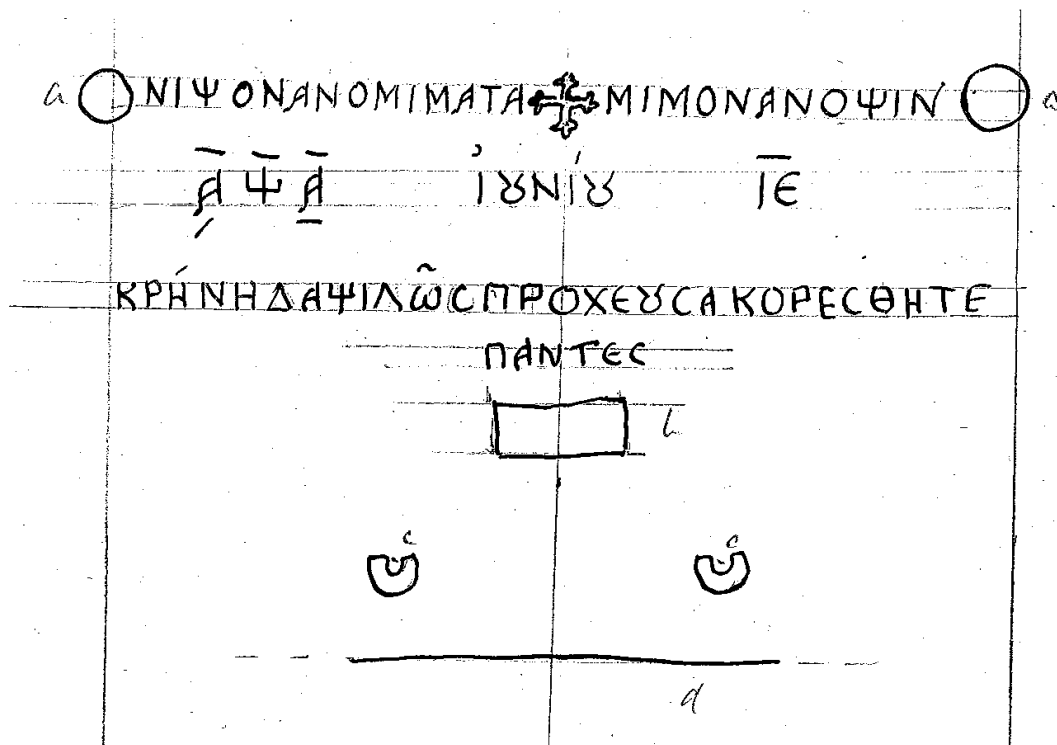 a ΝΙΨΟΝΑΝΟΜΙΜΑΤΑ ΜΙΜΟΝΑΝΟΨΙΝ a
͵Α̅Ψ̅Α̅ ἸȢΝΊȢ Ι̅Ε̅
ΚΡΉΝΗΔΑΨΙΛῶϹΠΡΟΧΕȢϹΑΚΟΡΕϹΘΗΤΕ
ΠΆΝΤΕϹ
b
c c
d